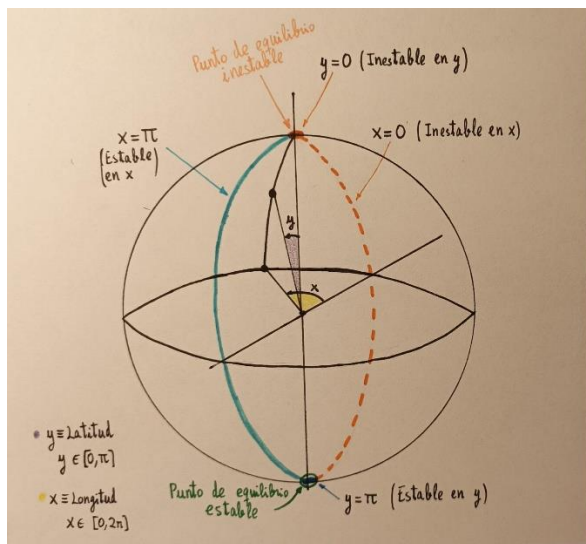 Punto de equilibrio
inestable
y=0 (Inestable en y)
x=π
(Estable
en x)
x=0 (Inestable en x)
y
x
• y ≡ Latitud
y ∈ [0,π]
• x ≡ Longitud
x ∈ [0,2π]
Punto de equilibrio
estable
y=π (Estable en y)